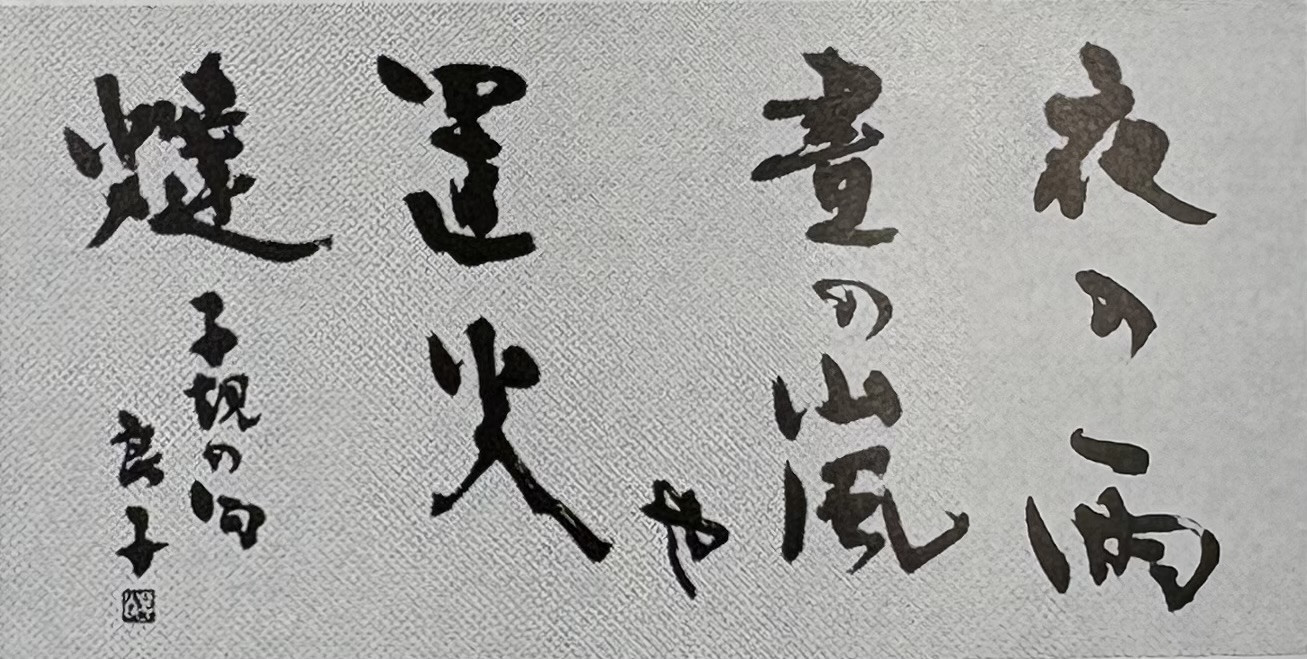 夜の雨
晝の嵐
や
置火
燵
子規の句
良子